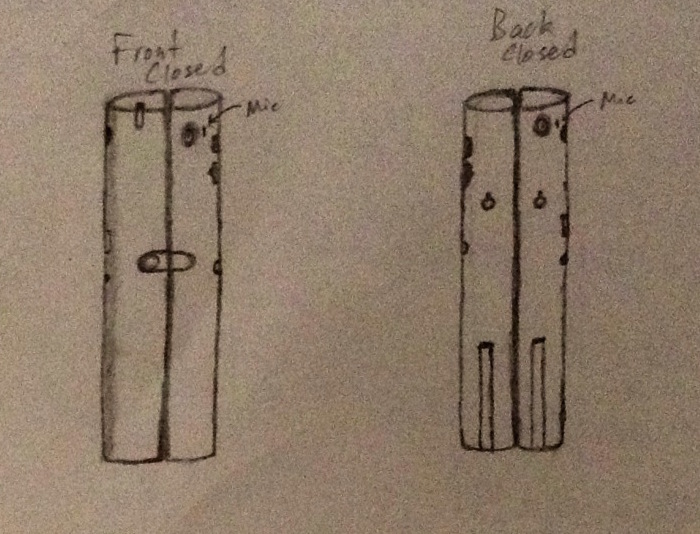 Front
Closed
Mic
Back
Closed
Mic